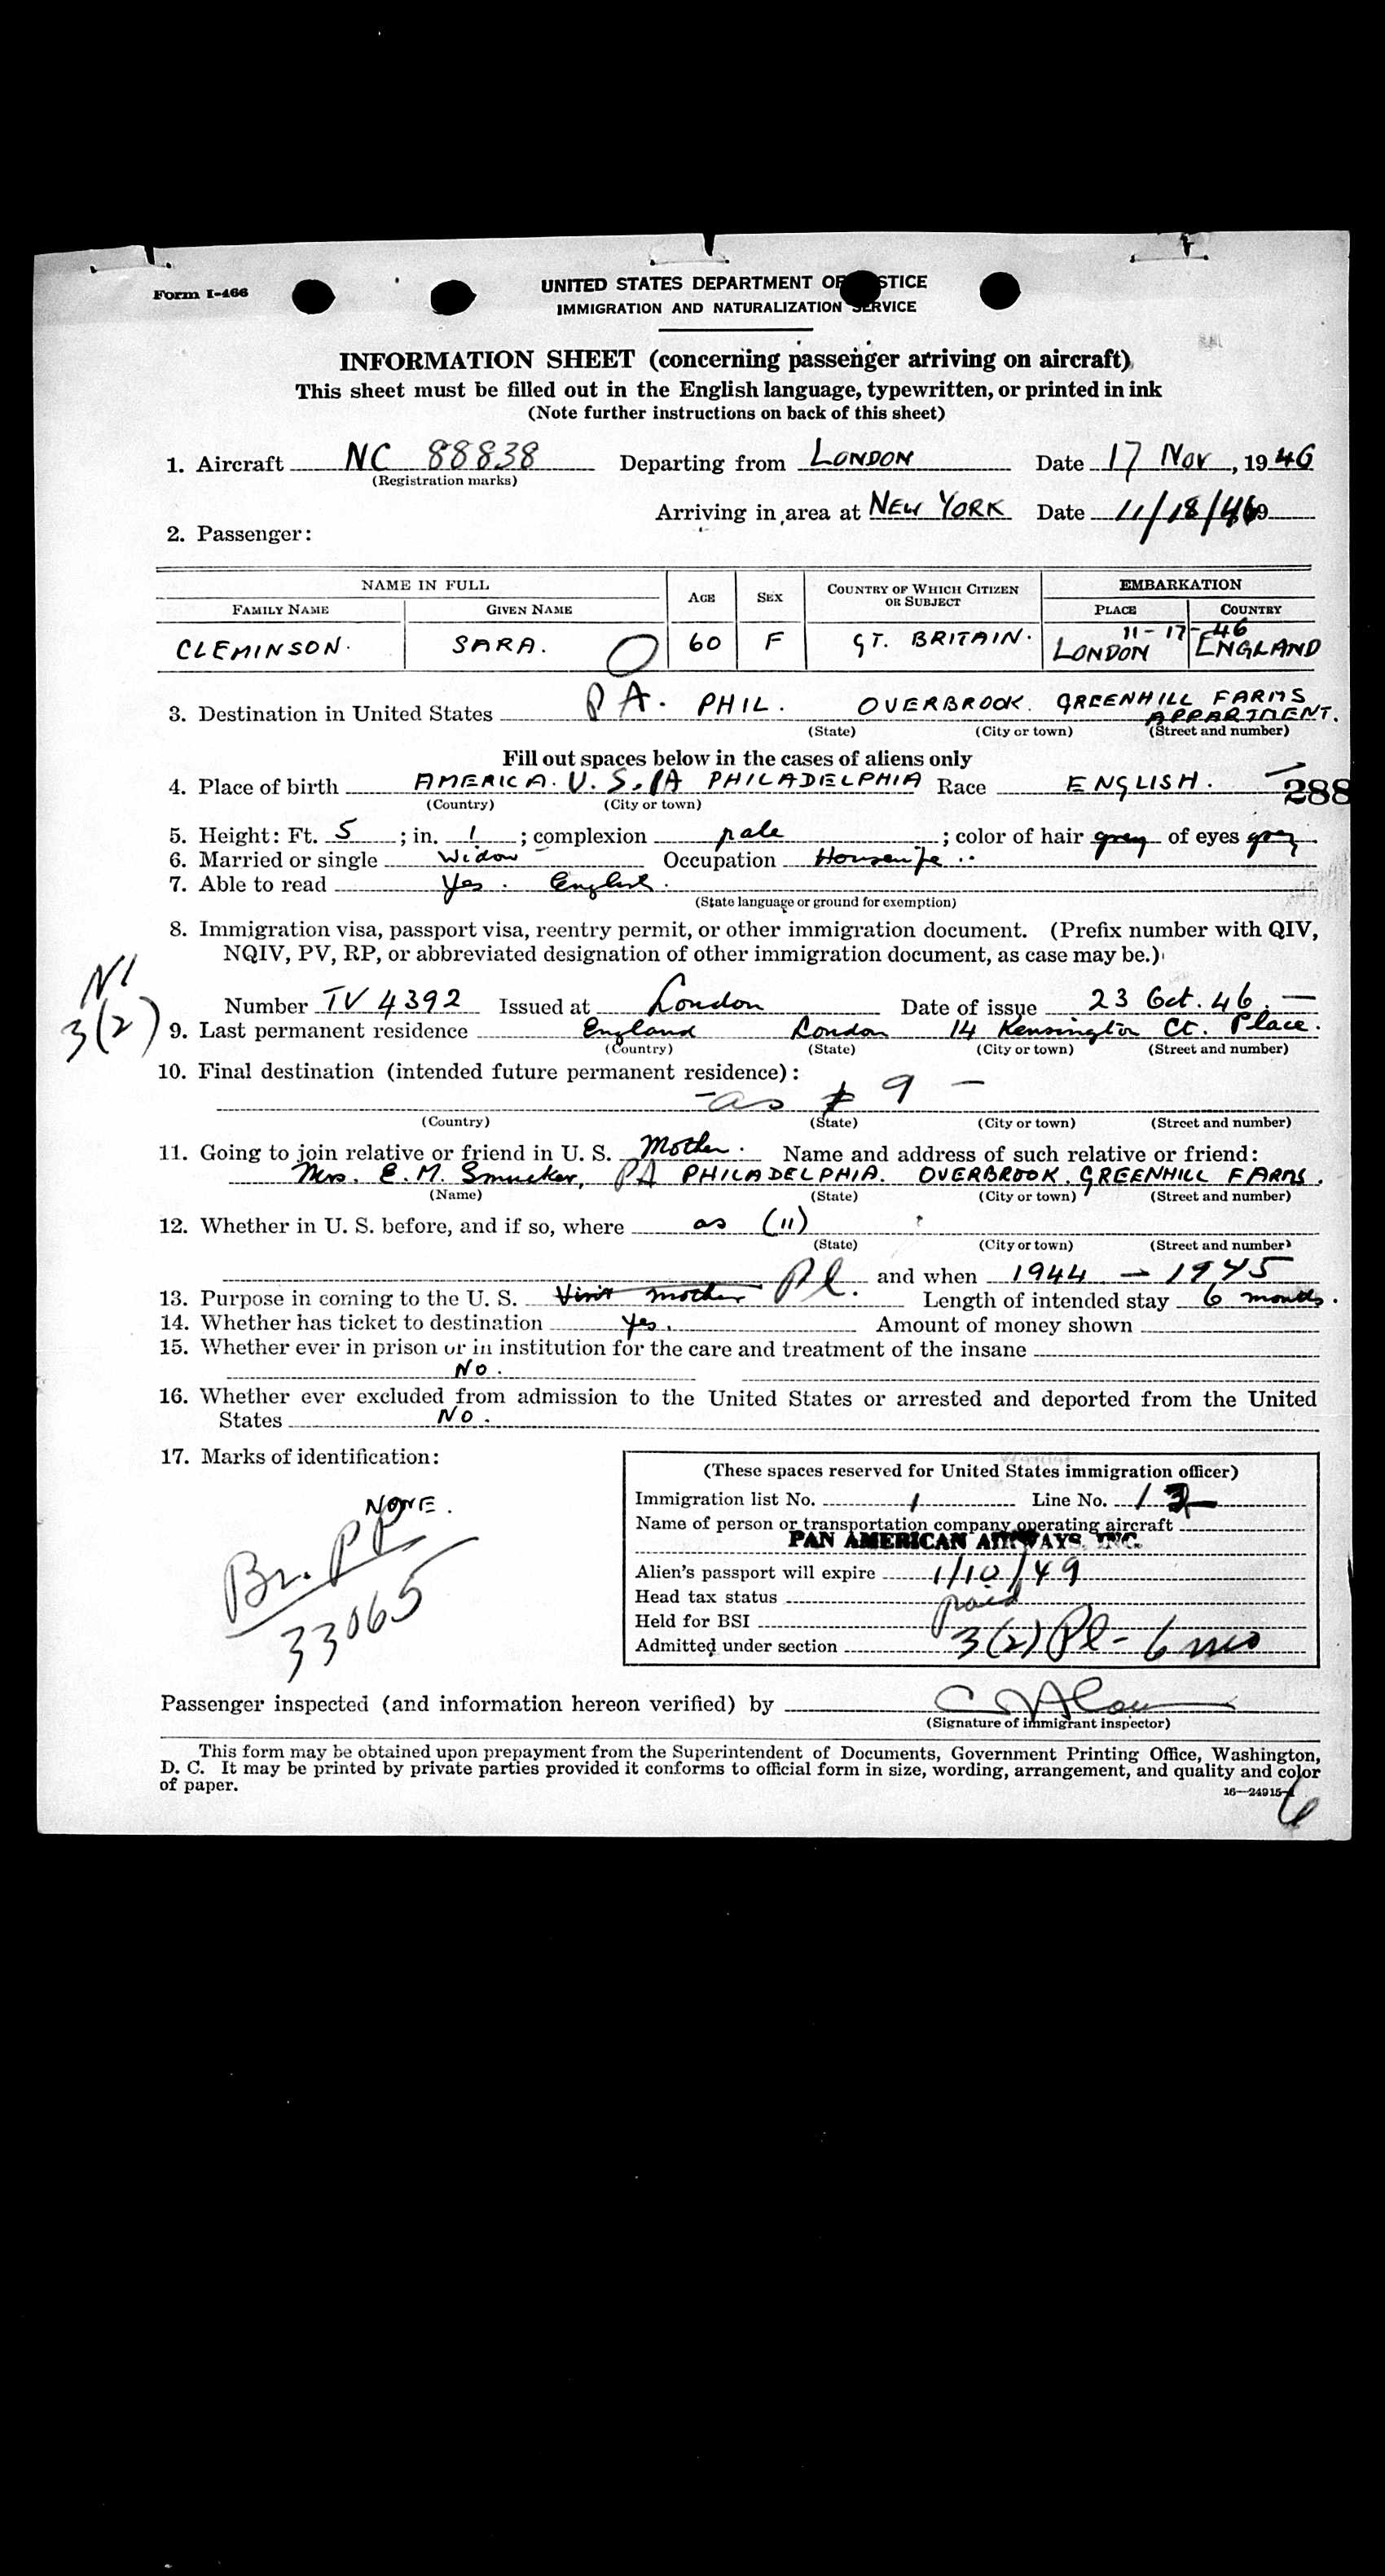 Form I-466
UNITED STATES DEPARTMENT OF JUSTICE
IMMIGRATION AND NATURALIZATION SERVICE
INFORMATION SHEET (concerning passenger arriving on aircraft)
This sheet must be filled out in the English language, typewritten, or printed in ink
(Note further instructions on back of this sheet)
1. Aircraft NC 88838 Departing from LONDON Date 17 Nov, 1946
(Registration marks)
Arriving in area at NEW YORK Date 11/18/46 19
2. Passenger:
NAME IN FULL AGE SEX COUNTRY OF WHICH CITIZEN OR SUBJECT EMBARKATION
FAMILY NAME GIVEN NAME PLACE COUNTRY
11-17-46
CLEMINSON. SARA. 60 F GT. BRITAIN. LONDON ENGLAND
3. Destination in United States PA. PHIL. OVERBROOK. GREENHILL FARMS
APPARTMENT.
(State) (City or town) (Street and number)
Fill out spaces below in the cases of aliens only
4. Place of birth AMERICA. U.S.A PHILADELPHIA Race ENGLISH. 288
(Country) (City or town)
5. Height: Ft. 5; in. 1; complexion pale; color of hair grey of eyes grey
6. Married or single Widow Occupation Housewife..
7. Able to read Yes. English.
(State language or ground for exemption)
8. Immigration visa, passport visa, reentry permit, or other immigration document. (Prefix number with QIV,
NQIV, PV, RP, or abbreviated designation of other immigration document, as case may be.)
NI
Number TV 4392 Issued at London Date of issue 23 Oct. 46. —
3(2) 9. Last permanent residence England London 14 Kensington Ct. Place.
(Country) (State) (City or town) (Street and number)
10. Final destination (intended future permanent residence):
- as # 9 -
(Country) (State) (City or town) (Street and number)
11. Going to join relative or friend in U. S. Mother. Name and address of such relative or friend:
Mrs. E. M. Smucker, PA PHILADELPHIA. OVERBROOK. GREENHILL FARMS.
(Name) (State) (City or town) (Street and number)
12. Whether in U. S. before, and if so, where as (11)
(State) (City or town) (Street and number)
and when 1944 - 1945
13. Purpose in coming to the U. S. Visit mother Pl. Length of intended stay 6 months.
14. Whether has ticket to destination Yes. Amount of money shown
15. Whether ever in prison or in institution for the care and treatment of the insane
No.
16. Whether ever excluded from admission to the United States or arrested and deported from the United
States No.
17. Marks of identification:
NONE.
Br. PP
33065
(These spaces reserved for United States immigration officer)
Immigration list No. 1 Line No. 12
Name of person or transportation company operating aircraft
PAN AMERICAN AIRWAYS, INC.
Alien's passport will expire 1/10/49
Head tax status paid
Held for BSI
Admitted under section 3(2) Pl - 6 mos
Passenger inspected (and information hereon verified) by
(Signature of immigrant inspector)
This form may be obtained upon prepayment from the Superintendent of Documents, Government Printing Office, Washington,
D. C. It may be printed by private parties provided it conforms to official form in size, wording, arrangement, and quality and color
of paper.
16—24915-1
6